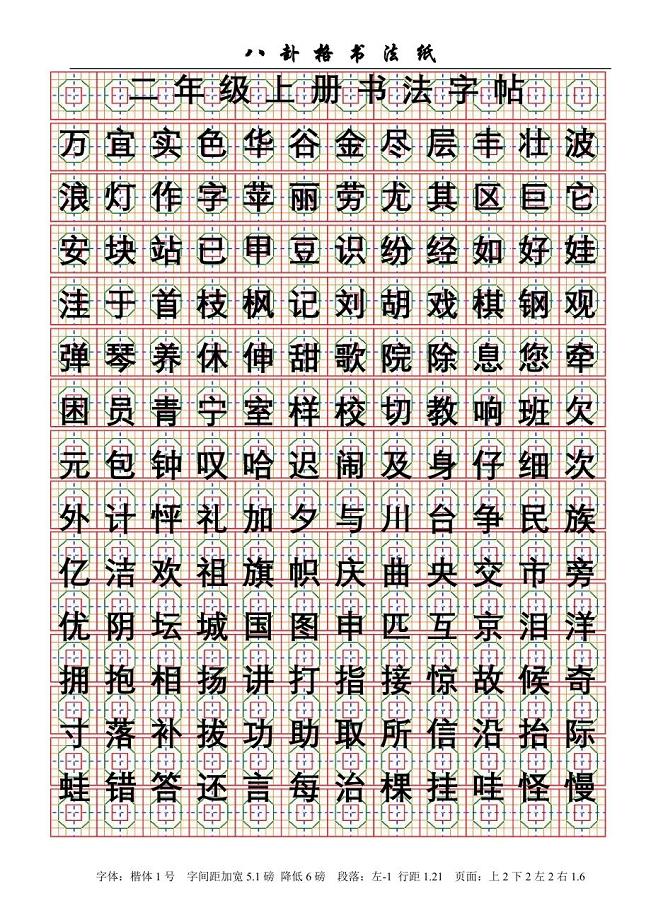 八卦格书法纸
二年级上册书法字帖
万宜实色华谷金尽层丰壮波
浪灯作字苹丽劳尤其区巨它
安块站已甲豆识纷经如好娃
洼于首枝枫记刘胡戏棋钢观
弹琴养休伸甜歌院除息您牵
困员青宁室样校切教响班欠
元包钟叹哈迟闹及身仔细次
外计怦礼加夕与川台争民族
亿洁欢祖旗帜庆曲央交市旁
优阴坛城国图申匹互京泪洋
拥抱相扬讲打指接惊故候奇
寸落补拔功助取所信沿抬际
蛙错答还言每治棵挂哇怪慢
字体：楷体1号 字间距加宽5.1磅 降低6磅 段落：左-1 行距1.21 页面：上2下2左2右1.6